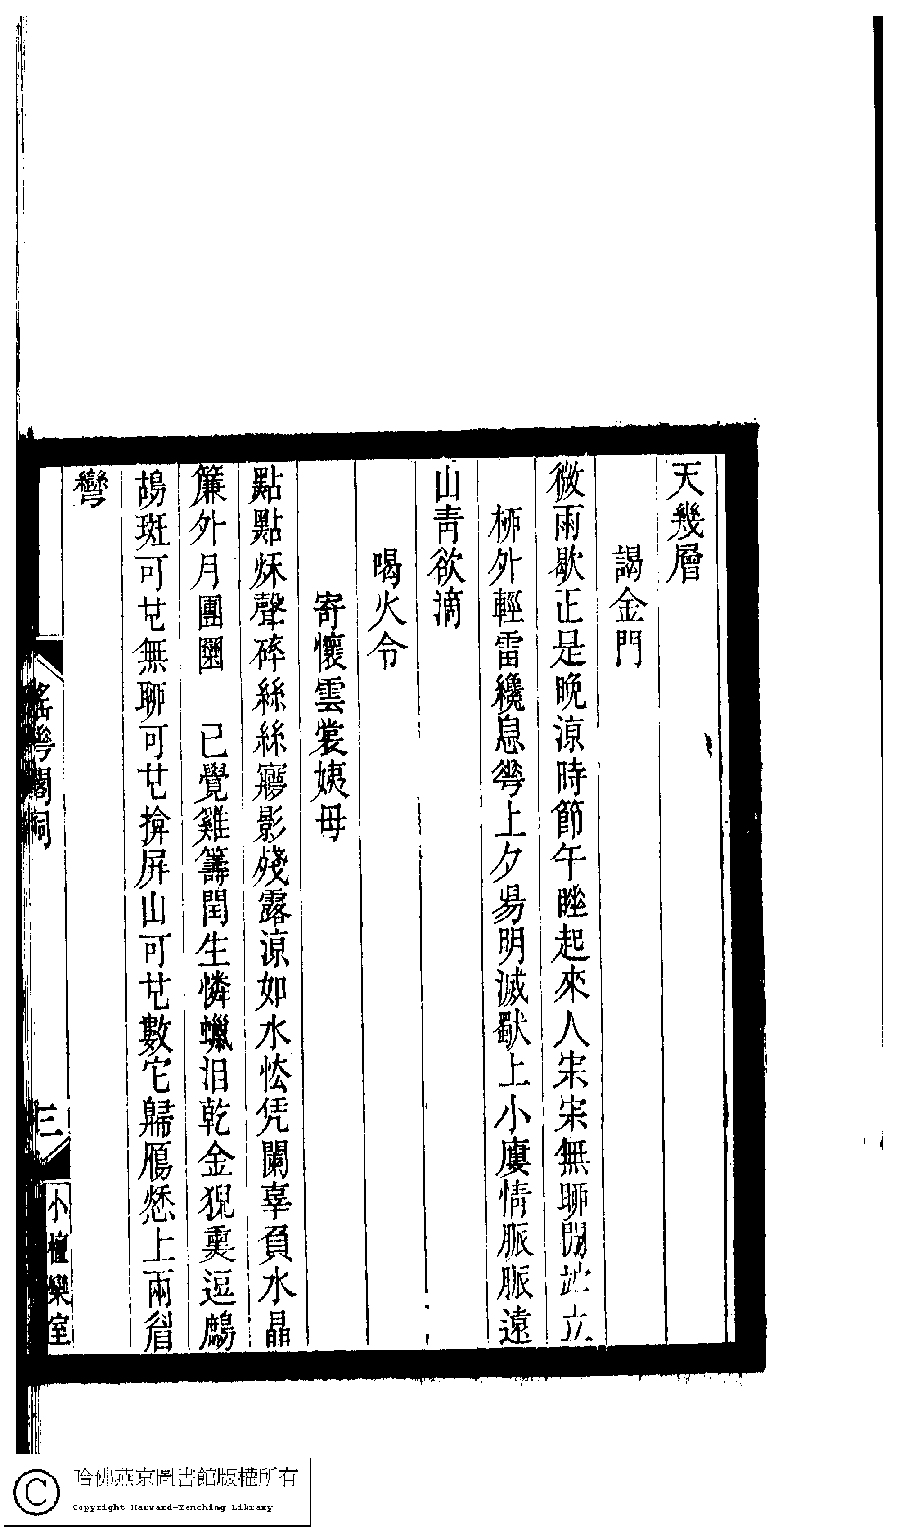 天幾層
謁金門
微雨歇正是晚涼時節午睡起來人宋宋無聊閒竚立
桺外輕雷纔息蕐上夕昜明滅獸上小廔情脈脈遠
山青欲滴
喝火令
寄懷雲裳姨母
點點秌聲碎絲絲㝱影殘露涼如水怯凭闌辜負水晶
簾外月團圞　已覺雞籌閏生憐蠟泪乾金猊裊逗鷓
鴣斑可㠯無聊可㠯揜屏山可㠯數它歸鴈愁上兩眉
彎
瑤蕐閣詞
三
小檀欒室
哈佛燕京圖書館版權所有
Copyright Harvard-Yenching Library